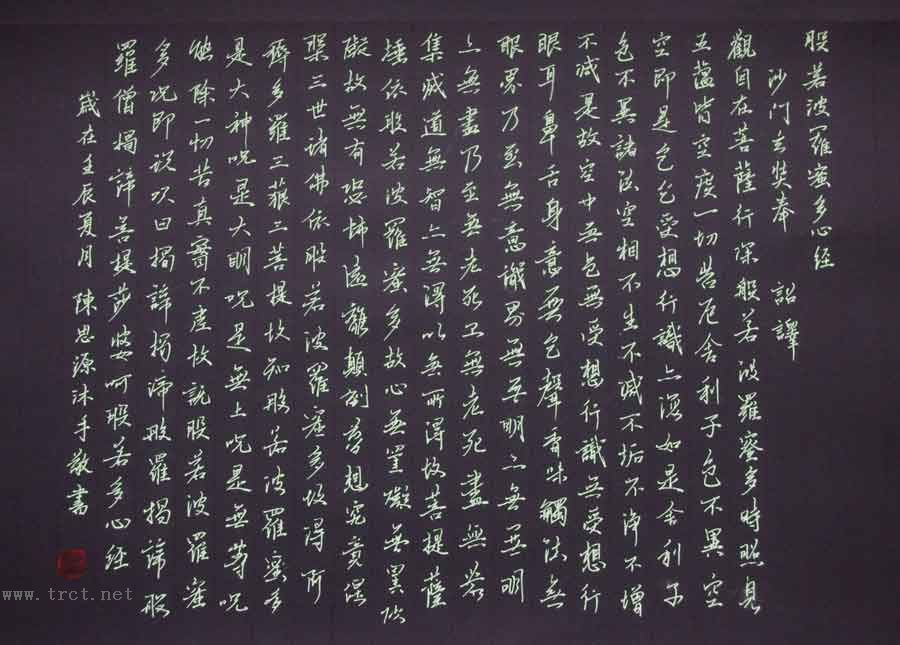 般若波羅蜜多心经
沙门玄奘奉 詔譯
觀自在菩薩行深般若波羅蜜多時照見
五蘊皆空度一切苦厄舍利子色不異空
空即是色色受想行識亦復如是舍利子
色不異諸法空相不生不滅不垢不淨不增
不减是故空中無色無受想行識無受想行
眼耳鼻舌身意無色聲香味觸法無
眼界乃至無意識界無無明亦無無明
亦無盡乃至無老死亦無老死盡無苦
集滅道無智亦無得以無所得故菩提薩
埵依般若波羅蜜多故心無罣礙無罣
礙故無有恐怖遠離顛倒夢想究竟涅
槃三世諸佛依般若波羅蜜多故得阿
耨多羅三藐三菩提故知般若波羅蜜多
是大神咒是大明咒是無上咒是無等咒
能除一切苦真實不虛故說般若波羅蜜
多咒即说咒曰揭諦揭諦般羅揭諦般
羅僧揭諦菩提莎婆呵般若多心经
歲在壬辰夏月 陳思源沐手敬書
www.trct.net